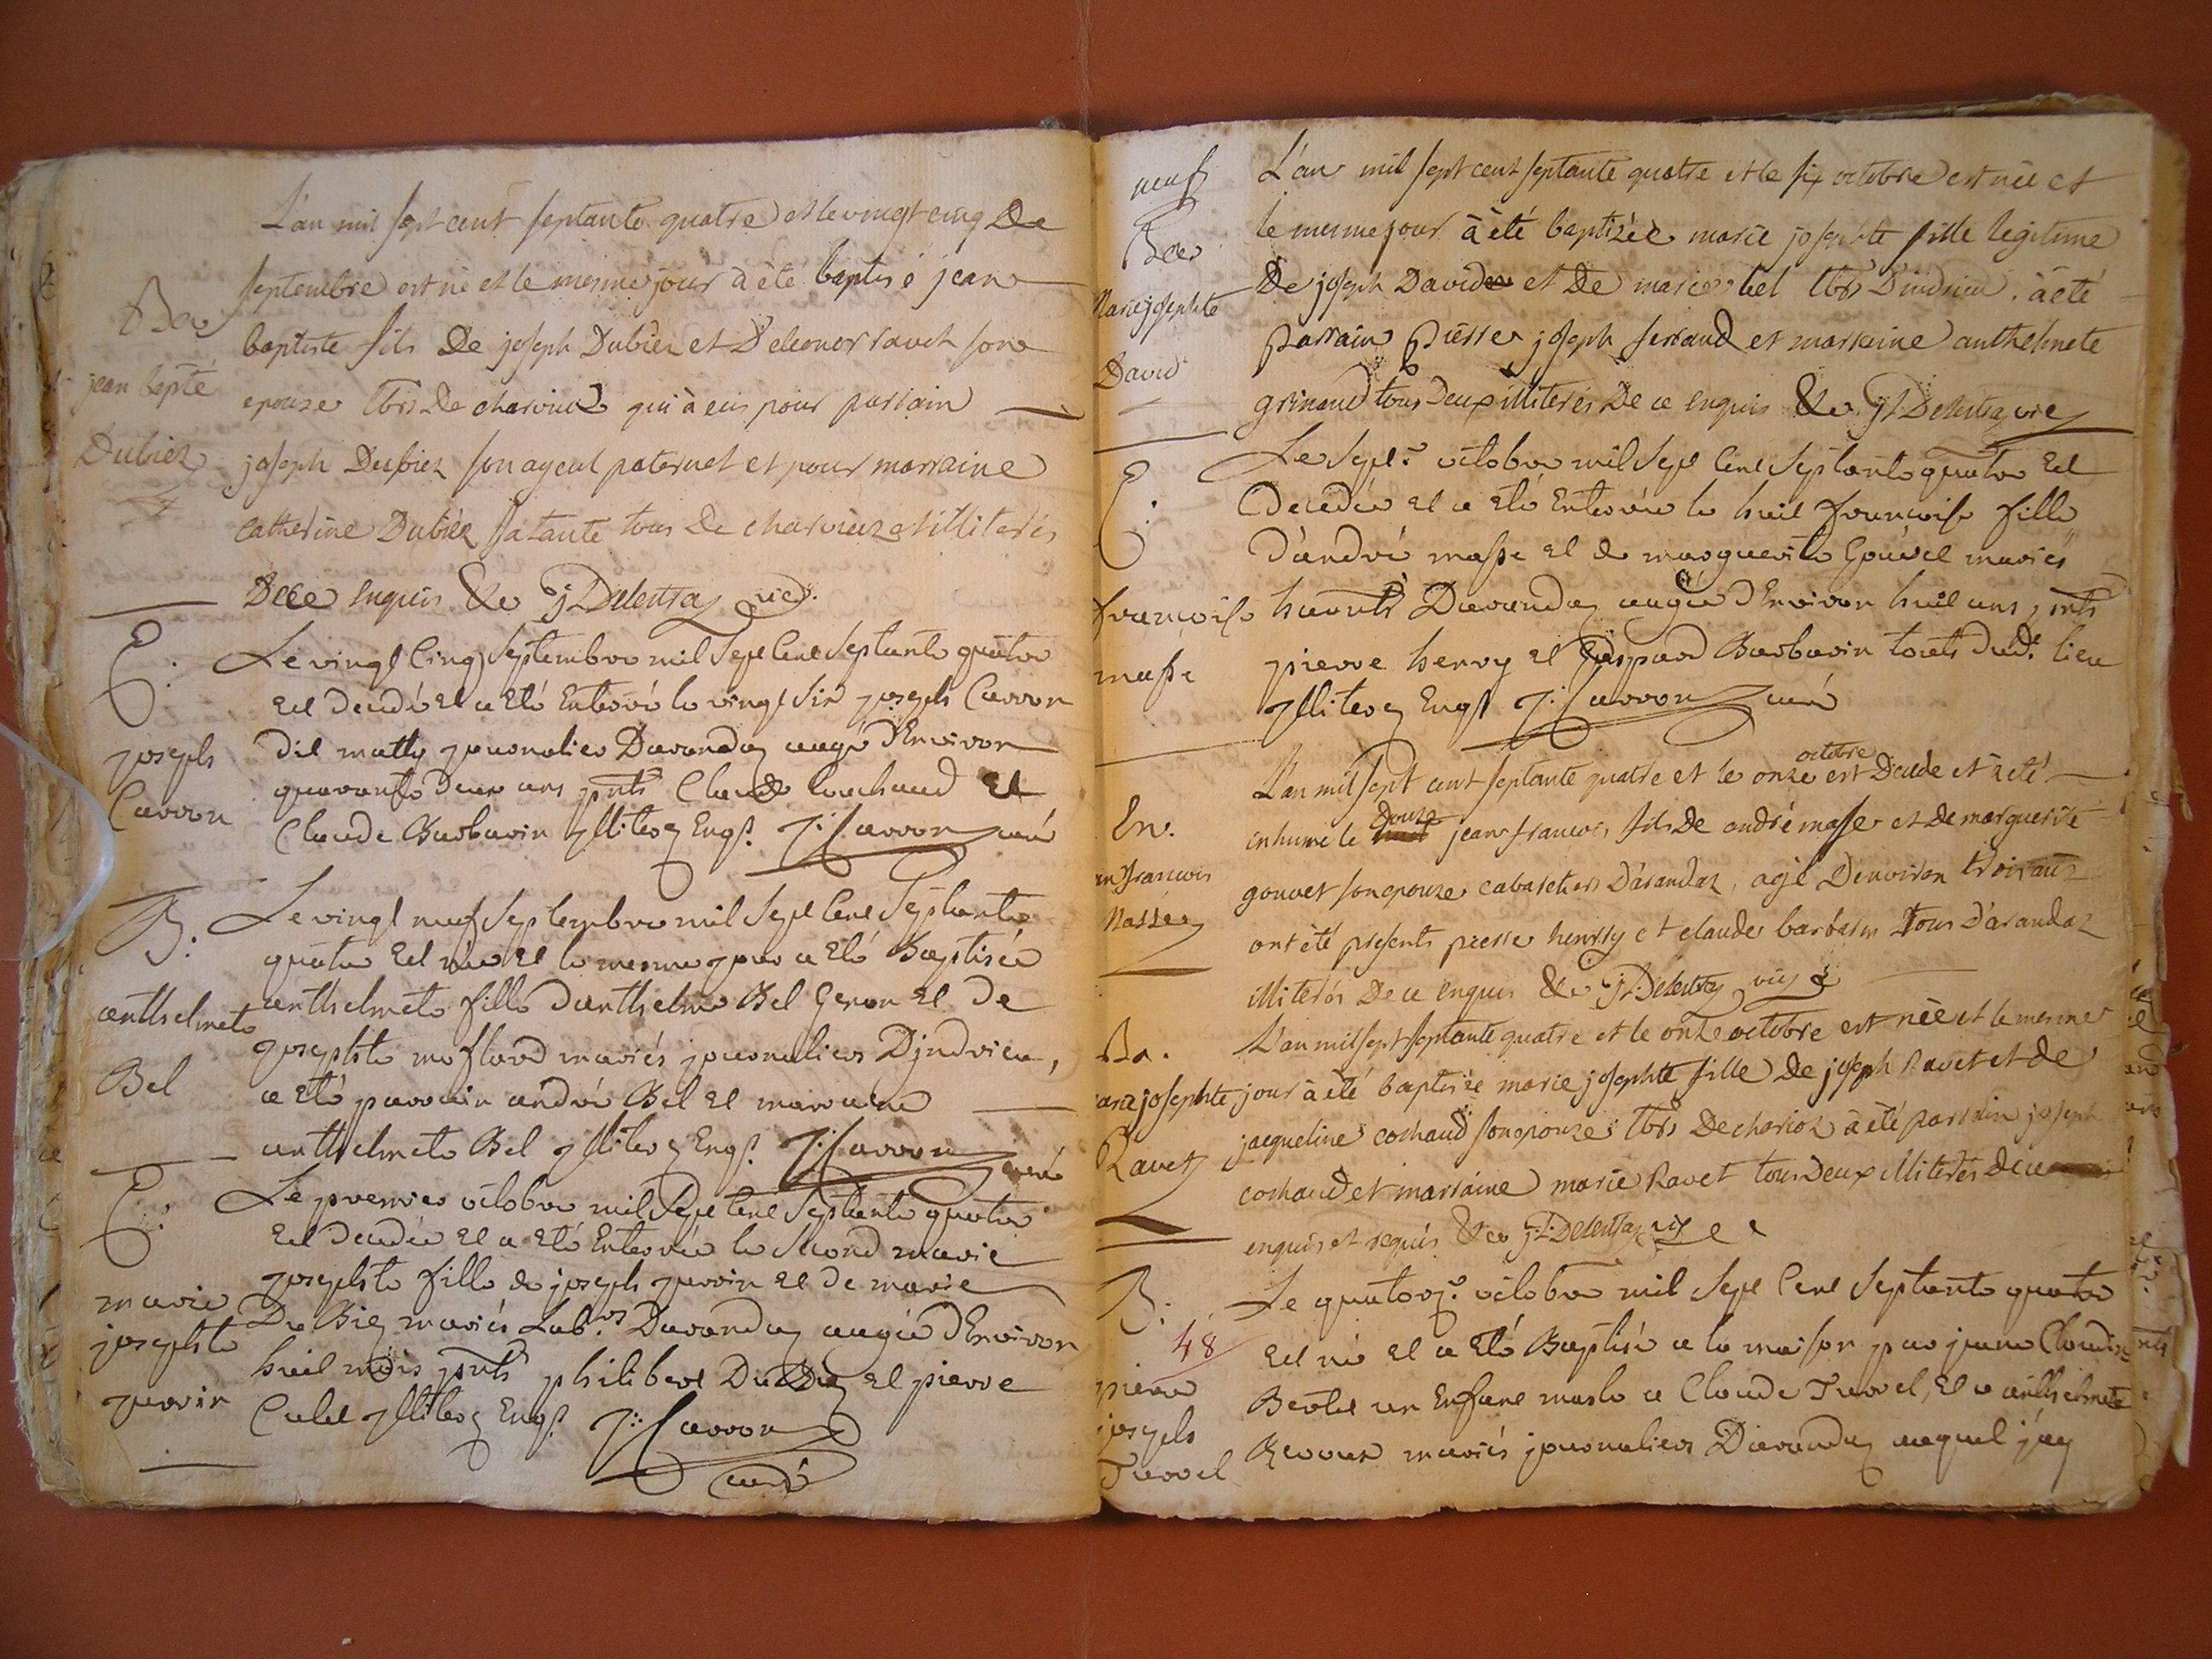 L'an mil sept cent septante quatre et le vingt cinq De
Bap septembre est né et le mesme jour à été baptisé jean
baptiste fils De joseph Dubiez et D'eleonor ravet son
jean bpte epouze lbrs De charvieuz qui à eus pour parrain
Dubiez joseph Dubiez son ayeul paternel et pour marraine
catherine Dubiez sa tante tous De charvieuz et illiterés
De ce enquis &c J Delentaz vic.
E. Le vingt Cinq Septembre mil Sept Cent Septante quatre
Est decedé Et a Eté Enterré le vingt Six joseph Carron
joseph dit matty journalier Darandaz aagé d'Environ
Carron quarante deux ans pnts Claude Cochaud Et
Claude Barbarin jlliterez Enqs. J: Carron curé
B. Le vingt neuf Septembre mil Sept Cent Septante
quatre Est née Et le mesme jour a Eté Baptisée
anthelmete anthelmete fille d'anthelme Bel Geron Et De
josephte moflard mariés journaliers D'jndrieu,
Bel a Eté parrain andré Bel Et marraine
anthelmete Bel jlliterez Enqs. J: Carron curé
E: Le premier octobre mil Sept Cent Septante quatre
Est decedée Et a Eté Enterrée le Second marie
josephte fille de joseph jarrin Et de marie
marie Du Biez mariés Labrs. Darandaz aagée d'Environ
josephte huit mois pnts philibert Du Biez Et pierre
jarrin Culet jlliterez Enqs. J: Carron
curé
neuf L'an mil sept cent septante quatre et le six octobre est née et
Bap le mesme jour à été baptizée marie josephte fille legitime
Marie josephte De joseph David et De marie bel lbrs D'indrieu. à été
David parrain Pierre joseph ferrand et marraine anthelmete
grinand tous Deux illiterés De ce enquis &c J Delentaz vic
E. Le Sept.e octobre mil Sept Cent Septante quatre Est
Decedée Et a Eté Enterrée le huit françoise fille
D'andré masse Et de marguerite Gouvet mariés
françoise Darandaz aagée d'Environ huit ans pnts
masse pierre henry Et Gaspard Barbarin touts dud.t lieu
jlliterez Enqs J: Carron curé
L'an mil sept cent septante quatre et le onze octobre est Decede et à été
En. inhumé le douze jean francois fils De andré masse et De marguerite
francois gouvet son epouze cabaretiers D'arandaz, agé D'environ trois ans
Masse ont été presents pierre henrry et claude barbarin Tous D'arandaz
illiterés De ce enquis &c J: Delentaz vic
Ba. L'an mil sept septante quatre et le onze octobre est née et le mesme
marie josephte jour à été baptisée marie josephte fille De joseph Ravet et de
jacqueline cochaud son epouze lbrs De charioz à été parrain joseph
Ravet cochaud et marraine marie Ravet tous Deux illiterés de ce
enquis et requis &c J: Delentaz vic
B. Le quatorz.e octobre mil Sept Cent Septante quatre
48 Est né Et a Eté Baptisé a la maison par jeane Claudine
pierre Bertet un Enfant masle a Claude Turrel, Et a anthelmete
joseph Revoux mariés journaliers Darandaz auquel j'ay
Turrel